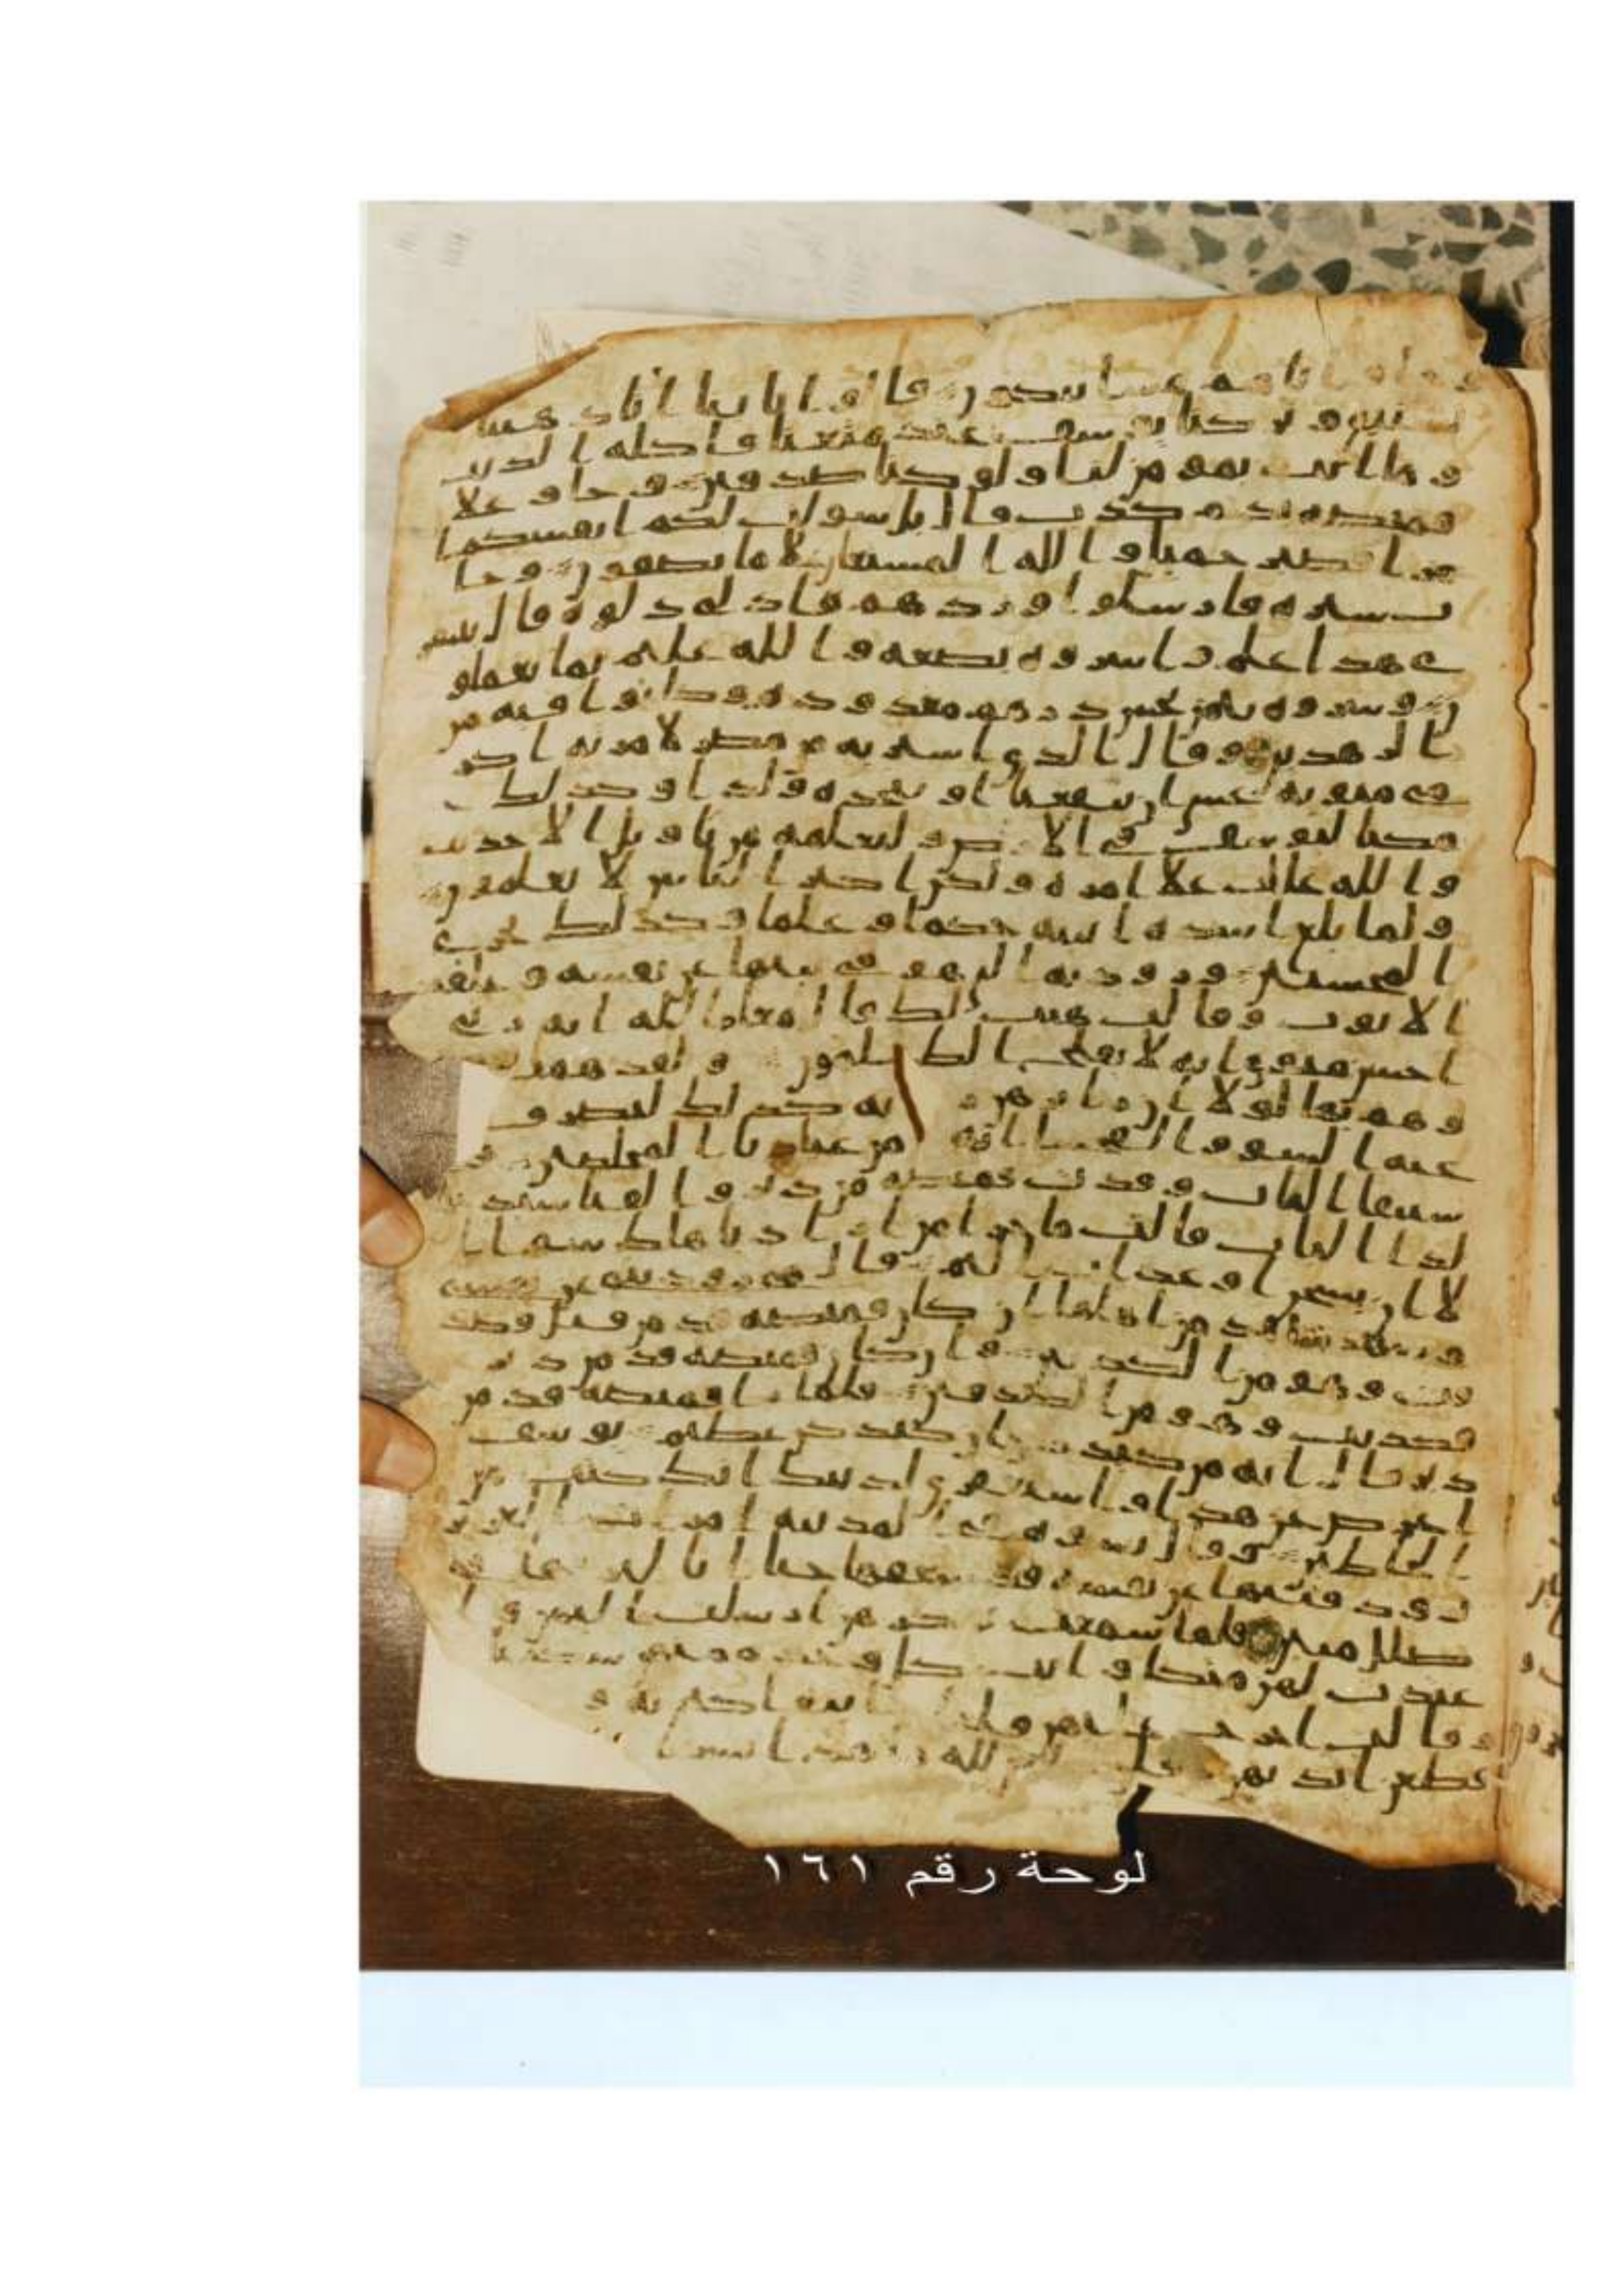 وجاو اباهم عشا يبكون قالوا يابانا انا ذهبنا
نستبق وتركنا يوسف عند متعنا فاكله الذيب
وما انت بمومن لنا ولو كنا صدقين وجاو علا
قميصه بدم كذب قال بل سولت لكم انفسكم ا
مرا فصبر جميل والله المستعان علا ما تصفون وجا
ت سيره فارسلوا وردهم فادلى دلوه قال يبشر
ى هذا غلم واسروه بضعه والله عليم بما يعملو
ن وشروه بثمن بخس درهم معدوده وكانوا فيه من
ا لزهدين وقال الذي اشتريه من مصر لامرته اكر
مي مثويه عسى ان ينفعنا او نتخذه ولدا وكذلك
مكنا ليوسف في الارض ولنعلمه من تاويل الاحديث
والله غالب علا امره ولكن اكثر الناس لا يعلمون
ولما بلغ اشده اتينه حكما وعلما وكذلك نجزي
المحسنين ورودته التي هو في بيتها عن نفسه وغلقت
الابوب وقالت هيت لك قال معاذ الله انه ربي
احسن مثوي انه لا يفلح الظلمون ولقد همت
وهم بها لولا ان را برهن ربه كذلك لنصرف
عنه السو والفحشا انه من عبادنا المخلصين و
استبقا الباب وقدت قميصه من دبر والفيا سيد
لدا الباب قالت ما جزا من اراد باهلك سوا ا
لا ان يسجن او عذاب اليم قال هي رودتني عن نفسي
وشهد شهد من اهلها ان كان قميصه قد من قبل فصد
قت وهو من الكذبين وان كان قميصه قد من دبر
فكذبت وهو من الصدقين فلما را قميصه قد من
دبر قال انه من كيدكن ان كيدكن عظيم يوسف
اعرض عن هذا واستغفري لذنبك انك كنت من
الخاطين وقال نسوه في المدينه امرات العزيز
ترود فتيها عن نفسه قد شغفها حبا انا لنريها في
ضلل مبين فلما سمعت بمكرهن ارسلت اليهن وا
عتدت لهن متكا واتت كل وحده منهن سكينا
وقالت اخرج عليهن فلما راينه اكبرنه و
قطعن ايديهن وقلن لله ما هذا بشرا
لوحة رقم ١٦١